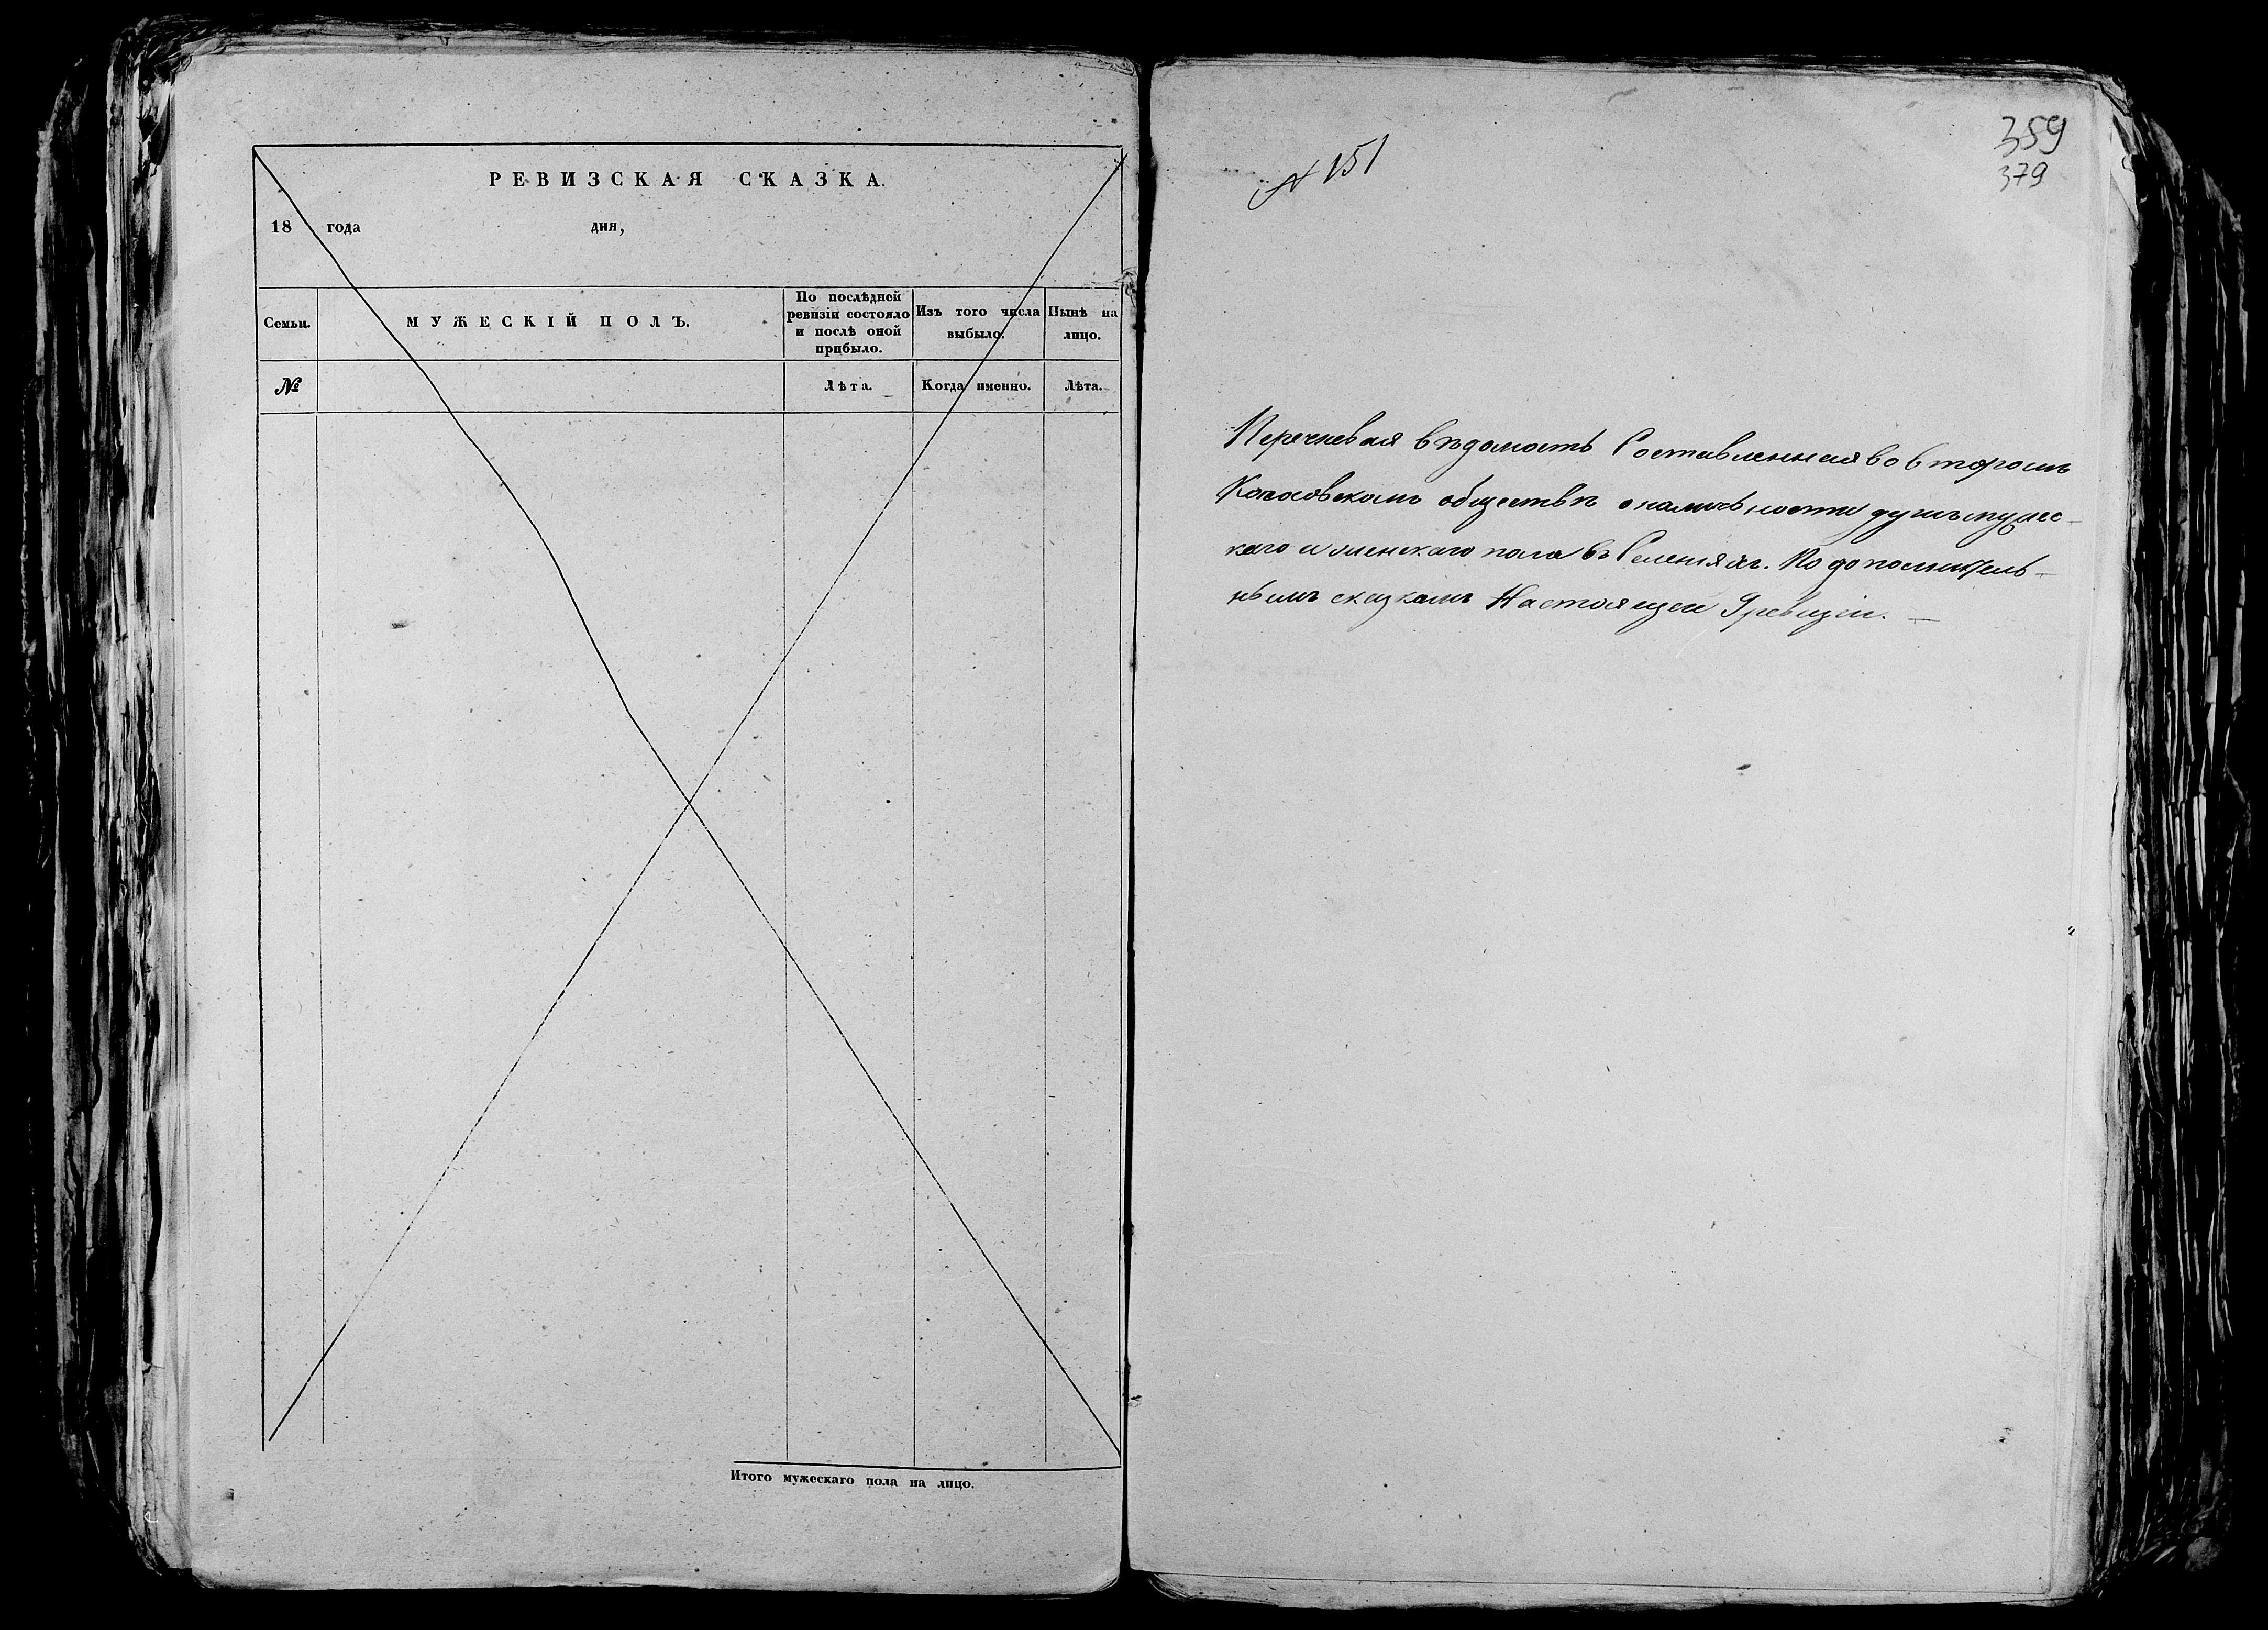 РЕВИЗСКАЯ СКАЗКА.
18 года дня,
Семьи.
МУЖЕСКІЙ ПОЛЪ.
По послѣдней
ревизіи состояло
и послѣ оной
прибыло.
Изъ того числа
выбыло.
Нынѣ на
лицо.
№
Лѣта.
Когда именно.
Лѣта.
Итого мужескаго пола на лицо.
№ 151
359
379
Перечневая вѣдомость Составленная во второмъ
обществѣ о душъ мужес-
каго и женскаго пола въ Селеніяхъ. По дополнитель-
нымъ сказкамъ Настоящей 9 ревизіи. —